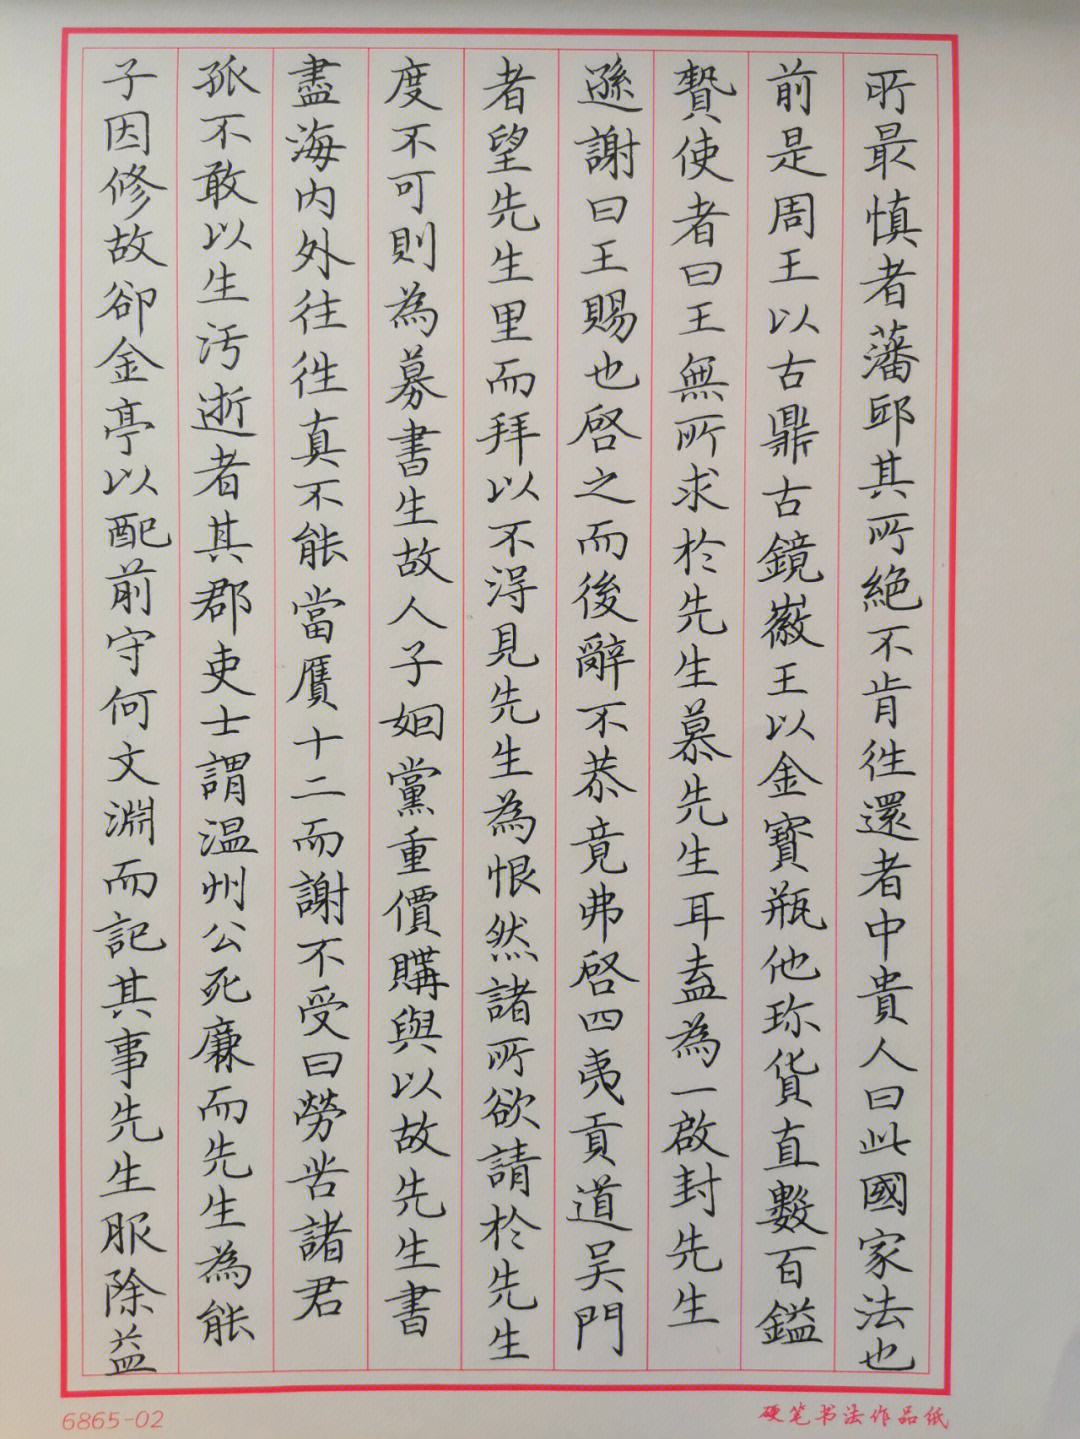 所最慎者藩邸其所絕不肯往還者中貴人曰此國家法也
前是周王以古鼎古鏡徽王以金寶瓶他珎貨直數百鎰
贄使者曰王無所求於先生慕先生耳盍為一啟封先生
遜謝曰王賜也啓之而後辭不恭竟弗啓四夷貢道吳門
者望先生里而拜以不得見先生為恨然諸所欲請於先生
度不可則為募書生故人子姻黨重價購與以故先生書
盡海內外往往真不能當贗十二而謝不受曰勞苦諸君
孤不敢以生汚逝者其郡吏士謂温州公死廉而先生為能
子因修故卻金亭以配前守何文淵而記其事先生服除益
6865-02
硬笔书法作品纸